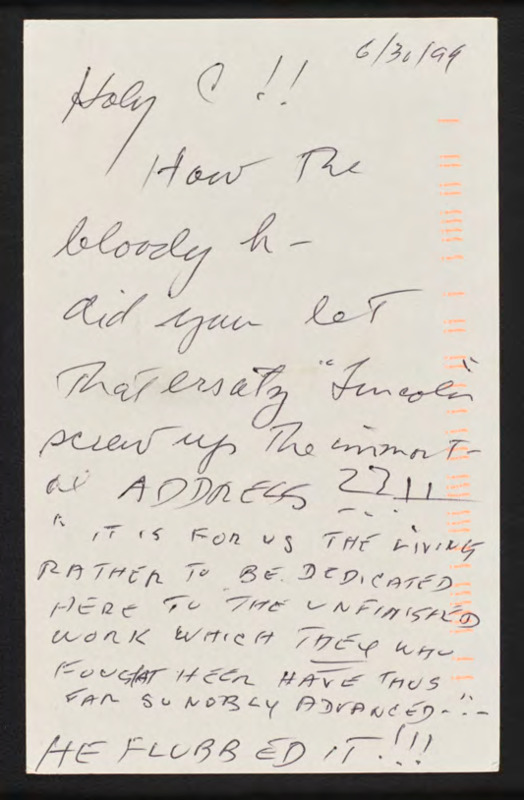 6/30/99
Holy C !!
How the
bloody h-
did you let
that ersatz "Lincoln"
screw up the immort-
al ADDRESS ??!!
" IT IS FOR US THE LIVING
RATHER TO BE DEDICATED
HERE TO THE UNFINISHED
WORK WHICH THEY WHO
FOUGHT HERE HAVE THUS
FAR SO NOBLY ADVANCED--"-
HE FLUBBED IT!!!